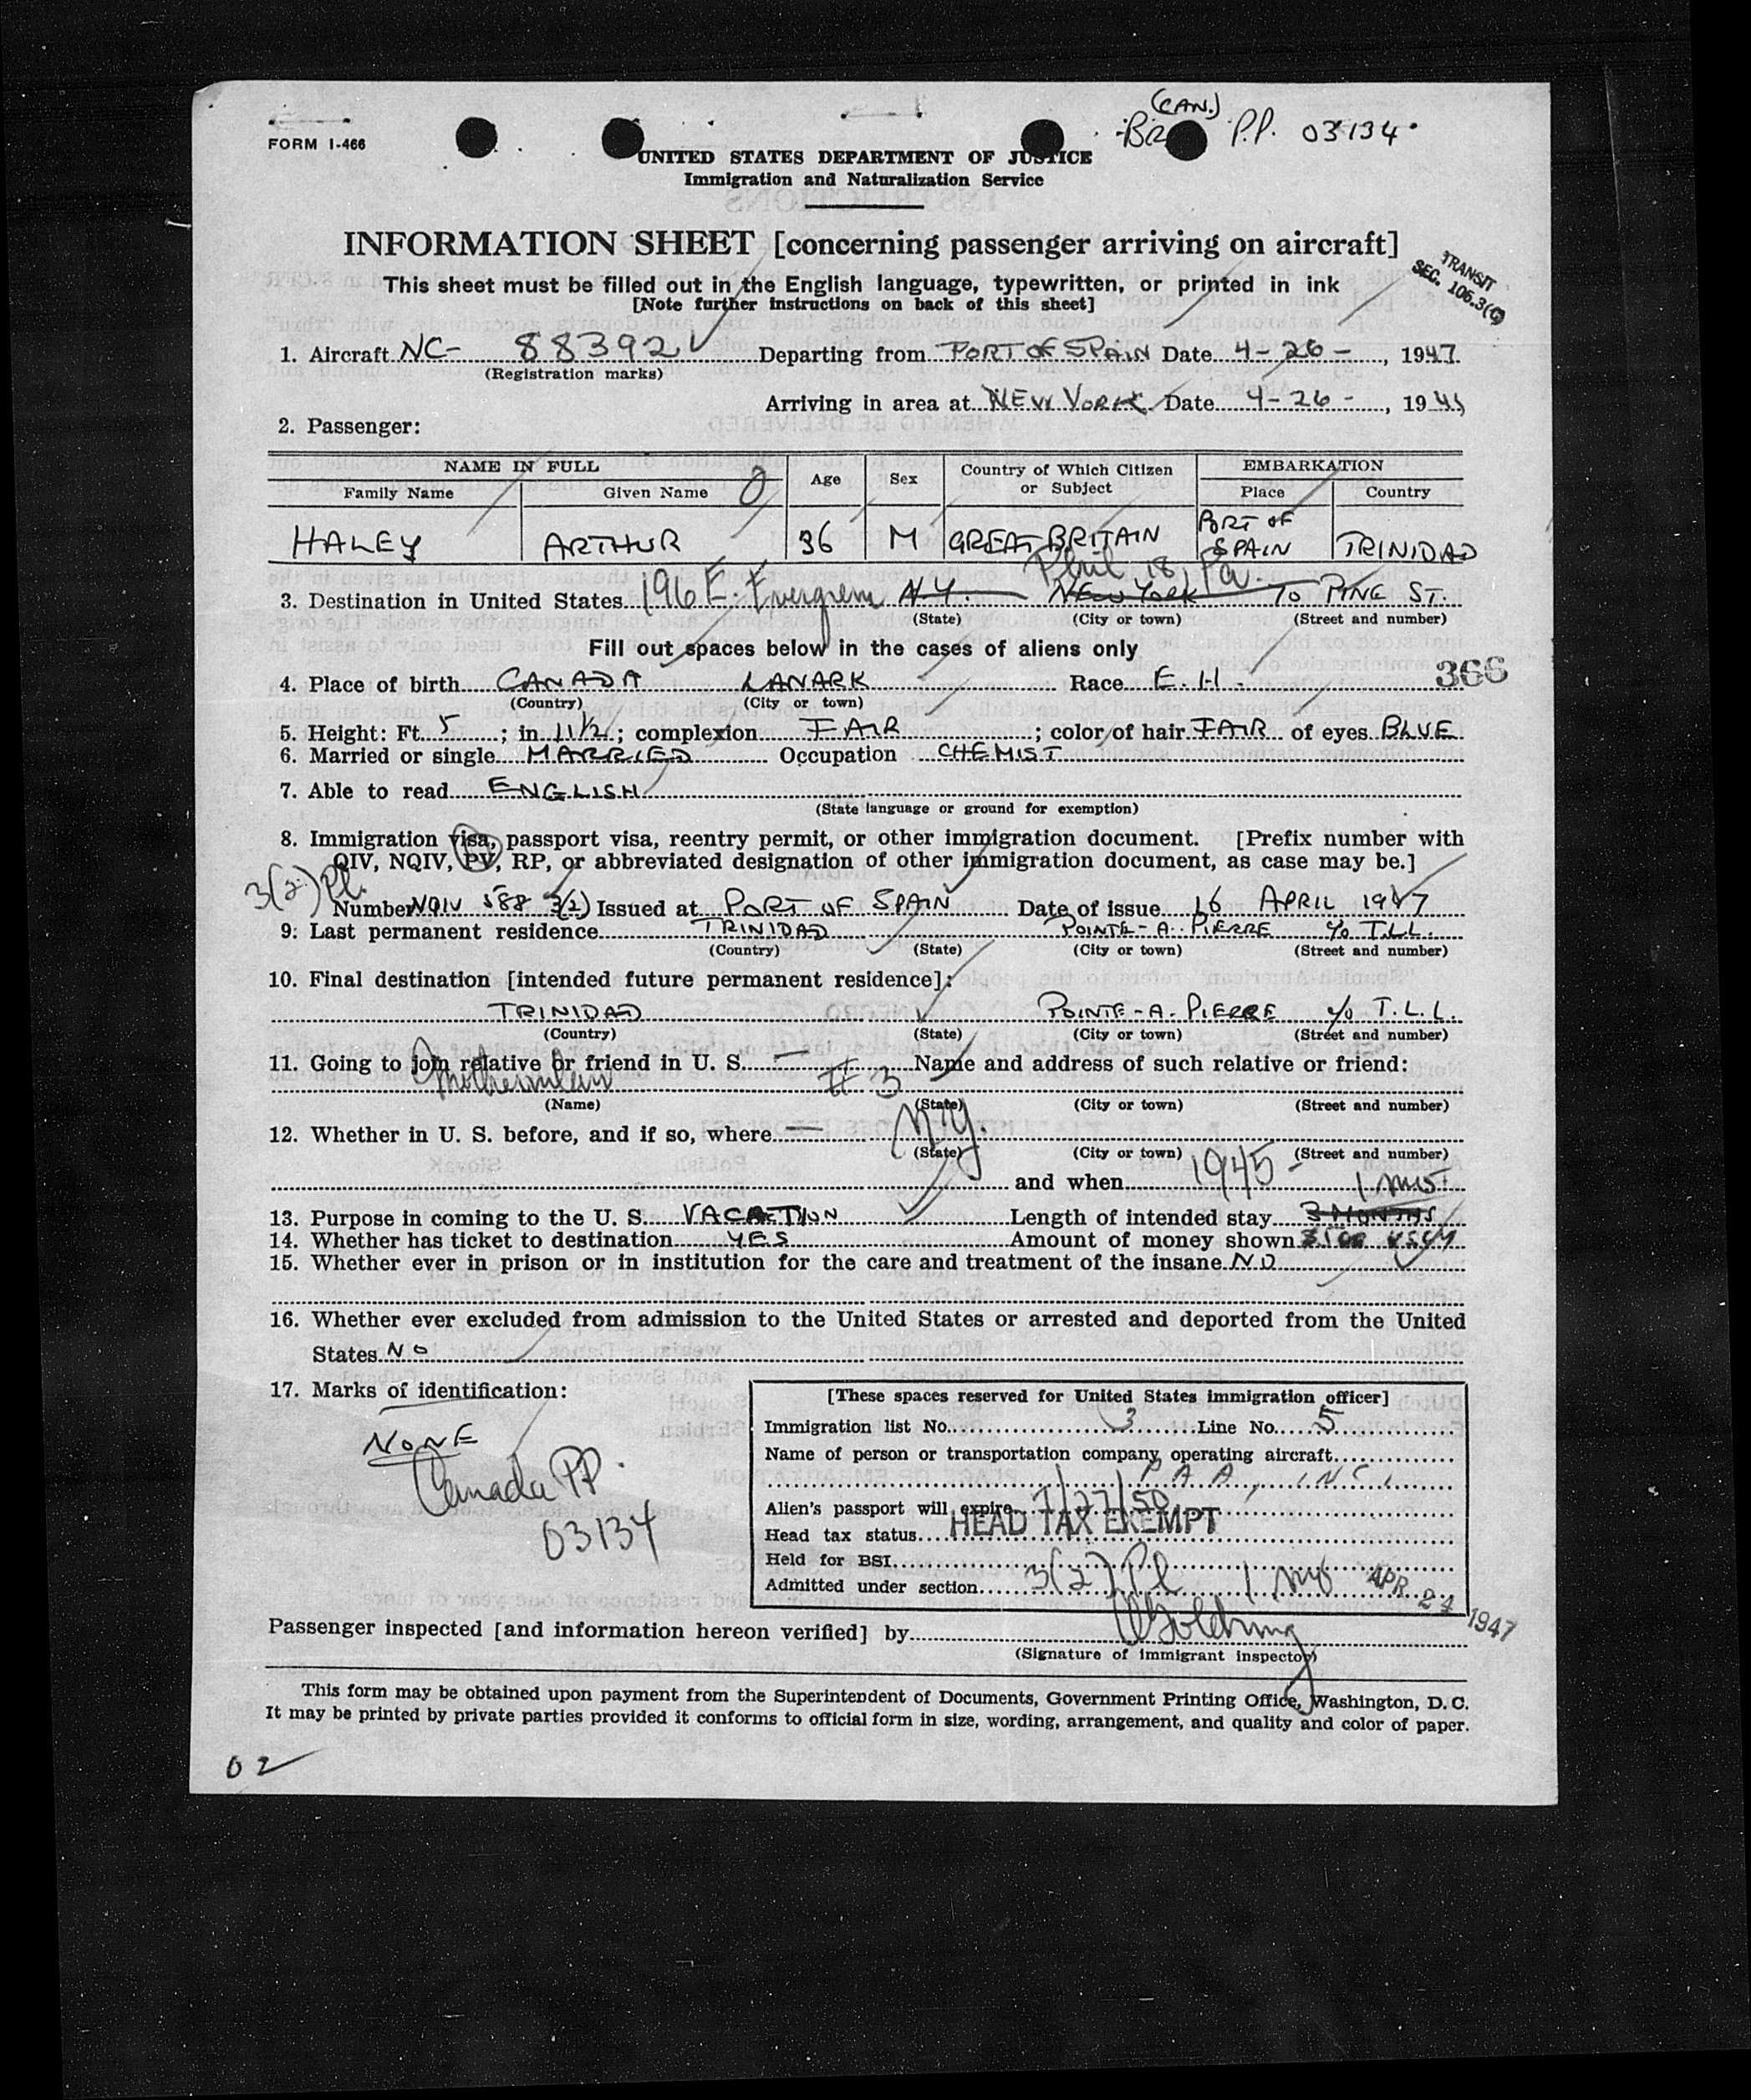 (CAN.)
FORM I-466
BR P.P. 03134
UNITED STATES DEPARTMENT OF JUSTICE
Immigration and Naturalization Service
INFORMATION SHEET [concerning passenger arriving on aircraft]
This sheet must be filled out in the English language, typewritten, or printed in ink
[Note further instructions on back of this sheet]
TRANSIT
SEC. 106.3(C)
1. Aircraft NC- 88392 Departing from PORT OF SPAIN Date 4-26-, 1947
(Registration marks)
Arriving in area at NEW YORK Date 4-26-, 19
2. Passenger:
NAME IN FULL Age Sex Country of Which Citizen or Subject EMBARKATION
Family Name Given Name Place Country
HALEY ARTHUR O 36 M GREAT BRITAIN PORT OF SPAIN TRINIDAD
Phil 18, Pa.
3. Destination in United States 196 E. Evergreen N.Y. NEW YORK 70 PINE ST.
(State) (City or town) (Street and number)
Fill out spaces below in the cases of aliens only
4. Place of birth CANADA LANARK Race E.H. 366
(Country) (City or town)
5. Height: Ft. 5; in. 11½; complexion FAIR; color of hair FAIR of eyes BLUE
6. Married or single MARRIED Occupation CHEMIST
7. Able to read ENGLISH
(State language or ground for exemption)
8. Immigration visa, passport visa, reentry permit, or other immigration document. [Prefix number with
QIV, NQIV, PV, RP, or abbreviated designation of other immigration document, as case may be.]
3(2) Pl.
Number NQIV 588 3(2) Issued at PORT OF SPAIN Date of issue 16 APRIL 1947
9. Last permanent residence TRINIDAD POINTE-A-PIERRE c/o T.L.L.
(Country) (State) (City or town) (Street and number)
10. Final destination [intended future permanent residece]:
TRINIDAD POINTE-A-PIERRE c/o T.L.L.
(Country) (State) (City or town) (Street and number)
11. Going to join relative or friend in U. S. — Name and address of such relative or friend:
Motherinlaw # 3
(Name) (State) (City or town) (Street and number)
12. Whether in U. S. before, and if so, where — N.Y.
(State) (City or town) (Street and number)
and when 1945 - 1 mo.
13. Purpose in coming to the U. S. VACATION Length of intended stay 3 MONTHS
14. Whether has ticket to destination YES Amount of money shown
15. Whether ever in prison or in institution for the care and treatment of the insane NO
16. Whether ever excluded from admission to the United States or arrested and deported from the United
States NO
17. Marks of identification:
NONE
Canada PP.
03134
[These spaces reserved for United States immigration officer]
Immigration list No. 3 Line No. 5
Name of person or transportation company operating aircraft
P.A.A., INC.
Alien's passport will expire 1/27/50
Head tax status HEAD TAX EXEMPT
Held for BSI
Admitted under section 3(2) Pl 1 mo APR 24 1947
Passenger inspected [and information hereon verified] by
(Signature of immigrant inspector)
This form may be obtained upon payment from the Superintendent of Documents, Government Printing Office, Washington, D. C.
It may be printed by private parties provided it conforms to official form in size, wording, arrangement, and quality and color of paper.
02